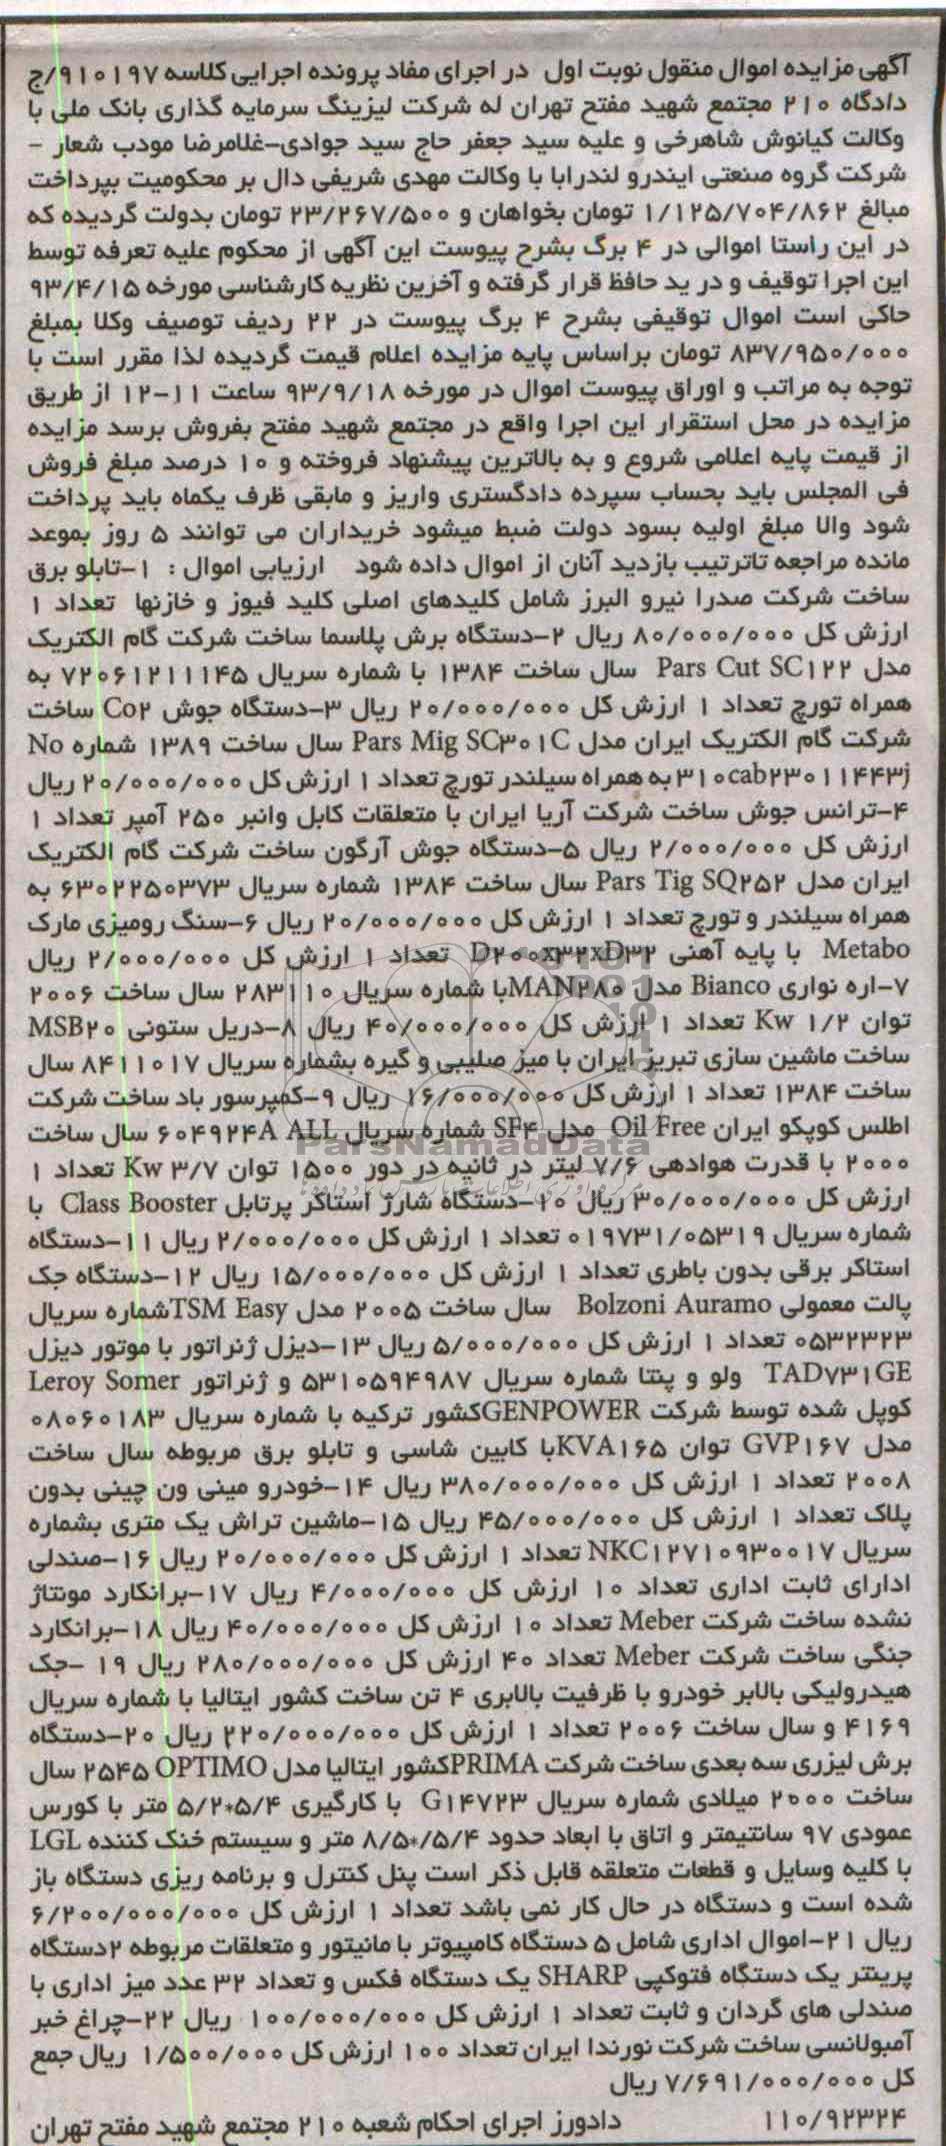 آگهی مزایده اموال منقول نوبت اول در اجرای مفاد پرونده اجرایی کلاسه ۹۱۰۱۹۷/ج
دادگاه ۲۱۰ مجتمع شهید مفتح تهران له شرکت لیزینگ سرمایه گذاری بانک ملی با
وکالت کیانوش شاهرخی و علیه سید جعفر حاج سید جوادی-غلامرضا مودب شعار -
شرکت گروه صنعتی ایندرو لندرابا با وکالت مهدی شریفی دال بر محکومیت بپرداخت
مبالغ ۱/۱۲۵/۷۰۴/۸۶۲ تومان بخواهان و ۲۳/۲۶۷/۵۰۰ تومان بدولت گردیده که
در این راستا اموالی در ۴ برگ بشرح پیوست این آگهی از محکوم علیه تعرفه توسط
این اجرا توقیف و در ید حافظ قرار گرفته و آخرین نظریه کارشناسی مورخه ۹۳/۴/۱۵
حاکی است اموال توقیفی بشرح ۴ برگ پیوست در ۲۲ ردیف توصیف وکلا بمبلغ
۸۳۷/۹۵۰/۰۰۰ تومان براساس پایه مزایده اعلام قیمت گردیده لذا مقرر است با
توجه به مراتب و اوراق پیوست اموال در مورخه ۹۳/۹/۱۸ ساعت ۱۱-۱۲ از طریق
مزایده در محل استقرار این اجرا واقع در مجتمع شهید مفتح بفروش برسد مزایده
از قیمت پایه اعلامی شروع و به بالاترین پیشنهاد فروخته و ۱۰ درصد مبلغ فروش
فی المجلس باید بحساب سپرده دادگستری واریز و مابقی ظرف یکماه باید پرداخت
شود والا مبلغ اولیه بسود دولت ضبط میشود خریداران می توانند ۵ روز بموعد
مانده مراجعه تاترتیب بازدید آنان از اموال داده شود ارزیابی اموال : ۱-تابلو برق
ساخت شرکت صدرا نیرو البرز شامل کلیدهای اصلی کلید فیوز و خازنها تعداد ۱
ارزش کل ۸۰/۰۰۰/۰۰۰ ریال ۲-دستگاه برش پلاسما ساخت شرکت گام الکتریک
مدل Pars Cut SC۱۲۲ سال ساخت ۱۳۸۴ با شماره سریال ۷۲۰۶۱۲۱۱۱۴۵ به
همراه تورچ تعداد ۱ ارزش کل ۲۰/۰۰۰/۰۰۰ ریال ۳-دستگاه جوش Co۲ ساخت
شرکت گام الکتریک ایران مدل Pars Mig SC۳۰۱C سال ساخت ۱۳۸۹ شماره No
۳۱۰cab۲۳۰۱۱۴۴۳j به همراه سیلندر تورچ تعداد ۱ ارزش کل ۲۰/۰۰۰/۰۰۰ ریال
۴-ترانس جوش ساخت شرکت آریا ایران با متعلقات کابل وانبر ۲۵۰ آمپر تعداد ۱
ارزش کل ۲/۰۰۰/۰۰۰ ریال ۵-دستگاه جوش آرگون ساخت شرکت گام الکتریک
ایران مدل Pars Tig SQ۲۵۲ سال ساخت ۱۳۸۴ شماره سریال ۶۳۰۲۲۵۰۳۷۳ به
همراه سیلندر و تورچ تعداد ۱ ارزش کل ۲۰/۰۰۰/۰۰۰ ریال ۶-سنگ رومیزی مارک
Metabo با پایه آهنی D۲۰۰x۳۲xD۳۲ تعداد ۱ ارزش کل ۲/۰۰۰/۰۰۰ ریال
۷-اره نواری Bianco مدل MAN۲۸۰با شماره سریال ۲۸۳۱۱۰ سال ساخت ۲۰۰۶
توان ۱/۲ Kw تعداد ۱ ارزش کل ۴۰/۰۰۰/۰۰۰ ریال ۸-دریل ستونی MSB۲۰
ساخت ماشین سازی تبریز ایران با میز صلیبی و گیره بشماره سریال ۸۴۱۱۰۱۷ سال
ساخت ۱۳۸۴ تعداد ۱ ارزش کل ۱۶/۰۰۰/۰۰۰ ریال ۹-کمپرسور باد ساخت شرکت
اطلس کوپکو ایران Oil Free مدل SF۴ شماره سریال ۶۰۴۹۲۴A ALL سال ساخت
۲۰۰۰ با قدرت هوادهی ۷/۶ لیتر در ثانیه در دور ۱۵۰۰ توان ۳/۷ Kw تعداد ۱
ارزش کل ۳۰/۰۰۰/۰۰۰ ریال ۱۰-دستگاه شارژ استاکر پرتابل Class Booster با
شماره سریال ۰۱۹۷۳۱/۰۵۳۱۹ تعداد ۱ ارزش کل ۲/۰۰۰/۰۰۰ ریال ۱۱-دستگاه
استاکر برقی بدون باطری تعداد ۱ ارزش کل ۱۵/۰۰۰/۰۰۰ ریال ۱۲-دستگاه جک
پالت معمولی Bolzoni Auramo سال ساخت ۲۰۰۵ مدل TSM Easyشماره سریال
۰۵۳۲۳۲۳ تعداد ۱ ارزش کل ۵/۰۰۰/۰۰۰ ریال ۱۳-دیزل ژنراتور با موتور دیزل
TAD۷۳۱GE ولو و پنتا شماره سریال ۵۳۱۰۵۹۴۹۸۷ و ژنراتور Leroy Somer
کوپل شده توسط شرکت GENPOWERکشور ترکیه با شماره سریال ۰۸۰۶۰۱۸۳
مدل GVP۱۶۷ توان KVA۱۶۵با کابین شاسی و تابلو برق مربوطه سال ساخت
۲۰۰۸ تعداد ۱ ارزش کل ۳۸۰/۰۰۰/۰۰۰ ریال ۱۴-خودرو مینی ون چینی بدون
پلاک تعداد ۱ ارزش کل ۴۵/۰۰۰/۰۰۰ ریال ۱۵-ماشین تراش یک متری بشماره
سریال NKC۱۲۷۱۰۹۳۰۰۱۷ تعداد ۱ ارزش کل ۲۰/۰۰۰/۰۰۰ ریال ۱۶-صندلی
ادارای ثابت اداری تعداد ۱۰ ارزش کل ۴/۰۰۰/۰۰۰ ریال ۱۷-برانکارد مونتاژ
نشده ساخت شرکت Meber تعداد ۱۰ ارزش کل ۴۰/۰۰۰/۰۰۰ ریال ۱۸-برانکارد
جنگی ساخت شرکت Meber تعداد ۴۰ ارزش کل ۲۸۰/۰۰۰/۰۰۰ ریال ۱۹ -جک
هیدرولیکی بالابر خودرو با ظرفیت بالابری ۴ تن ساخت کشور ایتالیا با شماره سریال
۴۱۶۹ و سال ساخت ۲۰۰۶ تعداد ۱ ارزش کل ۲۲۰/۰۰۰/۰۰۰ ریال ۲۰-دستگاه
برش لیزری سه بعدی ساخت شرکت PRIMAکشور ایتالیا مدل OPTIMO ۲۵۴۵ سال
ساخت ۲۰۰۰ میلادی شماره سریال G۱۴۷۲۳ با کارگیری ۵/۲*۵/۴ متر با کورس
عمودی ۹۷ سانتیمتر و اتاق با ابعاد حدود ۸/۵*/۵/۴ متر و سیستم خنک کننده LGL
با کلیه وسایل و قطعات متعلقه قابل ذکر است پنل کنترل و برنامه ریزی دستگاه باز
شده است و دستگاه در حال کار نمی باشد تعداد ۱ ارزش کل ۶/۲۰۰/۰۰۰/۰۰۰
ریال ۲۱-اموال اداری شامل ۵ دستگاه کامپیوتر با مانیتور و متعلقات مربوطه ۲دستگاه
پرینتر یک دستگاه فتوکپی SHARP یک دستگاه فکس و تعداد ۳۲ عدد میز اداری با
صندلی های گردان و ثابت تعداد ۱ ارزش کل ۱۰۰/۰۰۰/۰۰۰ ریال ۲۲-چراغ خبر
آمبولانسی ساخت شرکت نورندا ایران تعداد ۱۰۰ ارزش کل ۱/۵۰۰/۰۰۰ ریال جمع
کل ۷/۶۹۱/۰۰۰/۰۰۰ ریال
۱۱۰/۹۲۳۲۴ دادورز اجرای احکام شعبه ۲۱۰ مجتمع شهید مفتح تهران
ParsNamadData